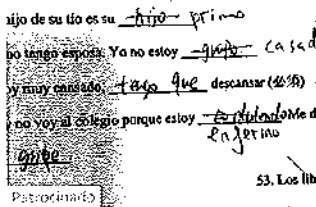 hijo de su tío es su hijo primo
no tengo esposa. Yo no estoy casad
oy muy cansado, tego que descansar (必须)
y no voy al colegio porque estoy Me d
enferino
gripe
53. Los lib
Patrocinado